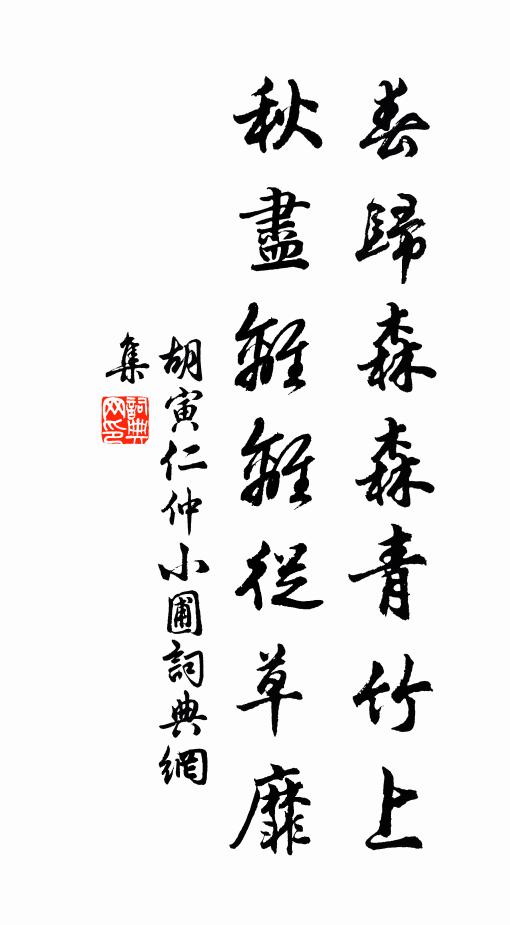 春歸森森青竹上
秋盡離離從草靡
胡寅仁仲小圃詞典網
集
詞典網印